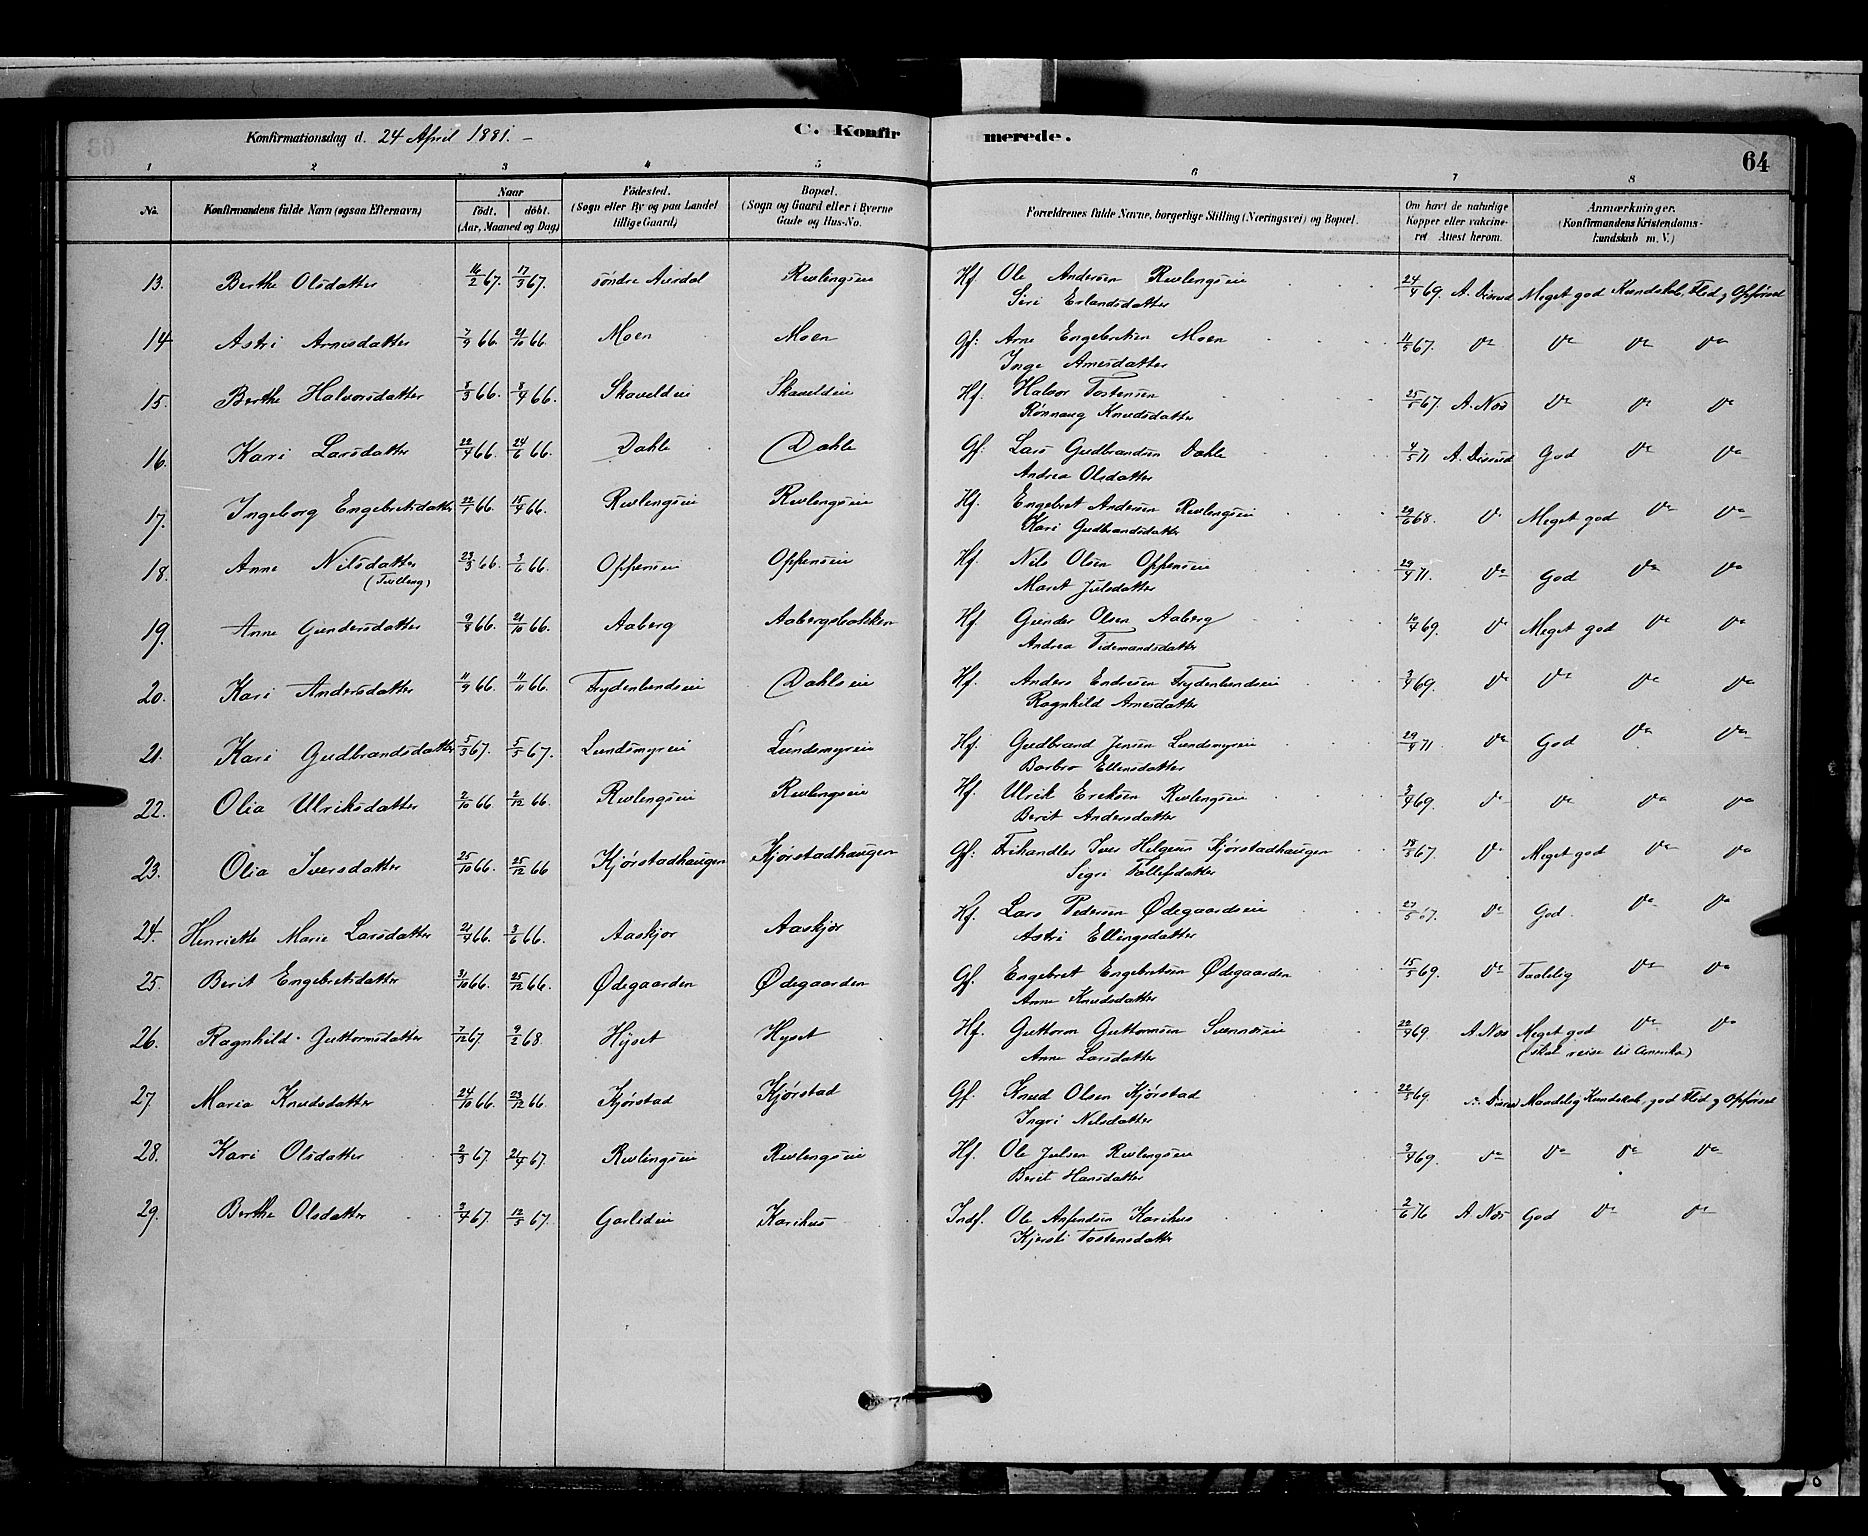 Konfirmationsdag d. 24 April 1881. –
C. Konfirmerede.
64
1 2 3 4 5 6 7 8
No. Konfirmandens fulde Navn (ogsaa Efternavn) Naar født. døbt. (Aar, Maaned og Dag) Fødested. (Sogn eller By og paa Landet tillige Gaard) Bopæl. (Sogn og Gaard eller i Byerne Gade og Hus-No. Forældrenes fulde Navne, borgerlige Stilling (Næringsvei) og Bopæl. Om havt de naturlige Kopper eller vakcineret Attest herom. Anmærkninger. (Konfirmandens Kristendomskundskab m. V.)
13. Berthe Olsdatter 16/2 67. 17/3 67. søndre Aurdal Revlingseie Hf. Ole Andersen Revlingseie 24/4 69. A. Disrud Meget god Kundskab, Flid og Opførsel
Siri Erlandsdatter
14 Astri Arnesdatter 7/9 66. 21/10 66. Moen Moen Gf: Arne Engebretsen Moen 11/5 67. Do Do Do Do
Inge Arnesdatter
15. Berthe Halvorsdatter 8/3 66. 8/4 66. Skaveldeie Skaveldeie Hf. Halvor Tostensen 25/5 67. A. Næs Do Do Do
Rønnaug Knudsdatter
16. Kari Larsdatter 22/4 66. 24/6 66. Dahle Dahle Gf: Lars Gudbrandsen Dahle 4/5 71 A. Disrud God Do Do
Andrea Olsdatter
17. Ingeborg Engebretsdatter 22/1 66. 15/4 66. Revlingseie Revlingseie Hf. Engebret Andersen Revlingseie 29/6 68. Do Meget god Do Do
Kari Gudbrandsdatter
18. Anne Nilsdatter 23/3 66. 3/6 66. Oppeneie Oppeneie Hf. Nils Olsen Oppeneie 29/4 71. Do God Do Do
(Tvilling) Marit Julsdatter
19. Anne Gundersdatter 9/8 66. 21/10 66. Aaberg Aabergsbakken Hf. Gunder Olsen Aaberg 10/4 69. Do Meget god Do Do
Andrea Tidemandsdatter
20. Kari Andersdatter 11/9 66. 11/11 66. Frydenlundseie Dahlseie Hf. Anders Endresen Frydenlundseie 3/4 69. Do Do Do Do
Ragnhild Arnesdatter
21. Kari Gudbrandsdatter 5/3 67. 5/5 67. Lundemyreie Lundemyreie Hf. Gudbrand Jensen Lundemyreie 29/4 71 Do God Do Do
Barbro Ellensdatter
22. Olia Ulriksdatter 2/10 66 2/12 66. Revlingseie Revlingseie Hf. Ulrik Eriksen Revlingseie 3/4 69. Do Do Do Do
Berit Andersdatter
23. Olia Iversdatter 25/10 66. 25/12 66 Kjørstadhaugen Kjørstadhaugen Gf: Frihandler Iver Helgesen Kjørstadhaugen 67. Do Meget god Do Do
Sigri Tollefsdatter
24. Henriette Marie Larsdatter 21/4 66. 3/6 66. Aaskjor Aaskjor Hf. Lars Pedersen Ødegaardseie 27/5 67. Do God. Do Do
Astri Ellingsdatter
25. Berit Engebretsdatter 31/10 66. 25/12 66. Ødegaarden Ødegaarden Gf. Engebret Engebretsen Ødegaarden 15/5 69. Do Taalelig Do Do
Anne Knudsdatter
26. Ragnhild Guttormsdatter 7/12 67 9/2 68 Hyset Hyset Hf. Guttorm Guttormsen 22/4 69. A. Næs Meget god Do Do
Anne Larsdatter (skal reise til Amerika)
27 Maria Knudsdatter 24/10 66. 23/12 66. Kjørstad Kjørstad Gf. Knud Olsen Kjørstad 22/5 69 A. Disrud Maadelig Kundskab, god Flid og Opførsel
Ingri Nilsdatter
28. Kari Olsdatter 2/3 67 21/4 67. Revlingseie Revlingseie Hf. Ole Julsen Revlingseie 3/4 69. Do Do Do Do
Berit Hansdatter
29. Berthe Olsdatter 2/4 67. 12/5 67. Garlideie Karihus Indf. Ole Anfindsen Karihus 2/6 76 A. Næs God Do Do
Kjersti Tostensdatter